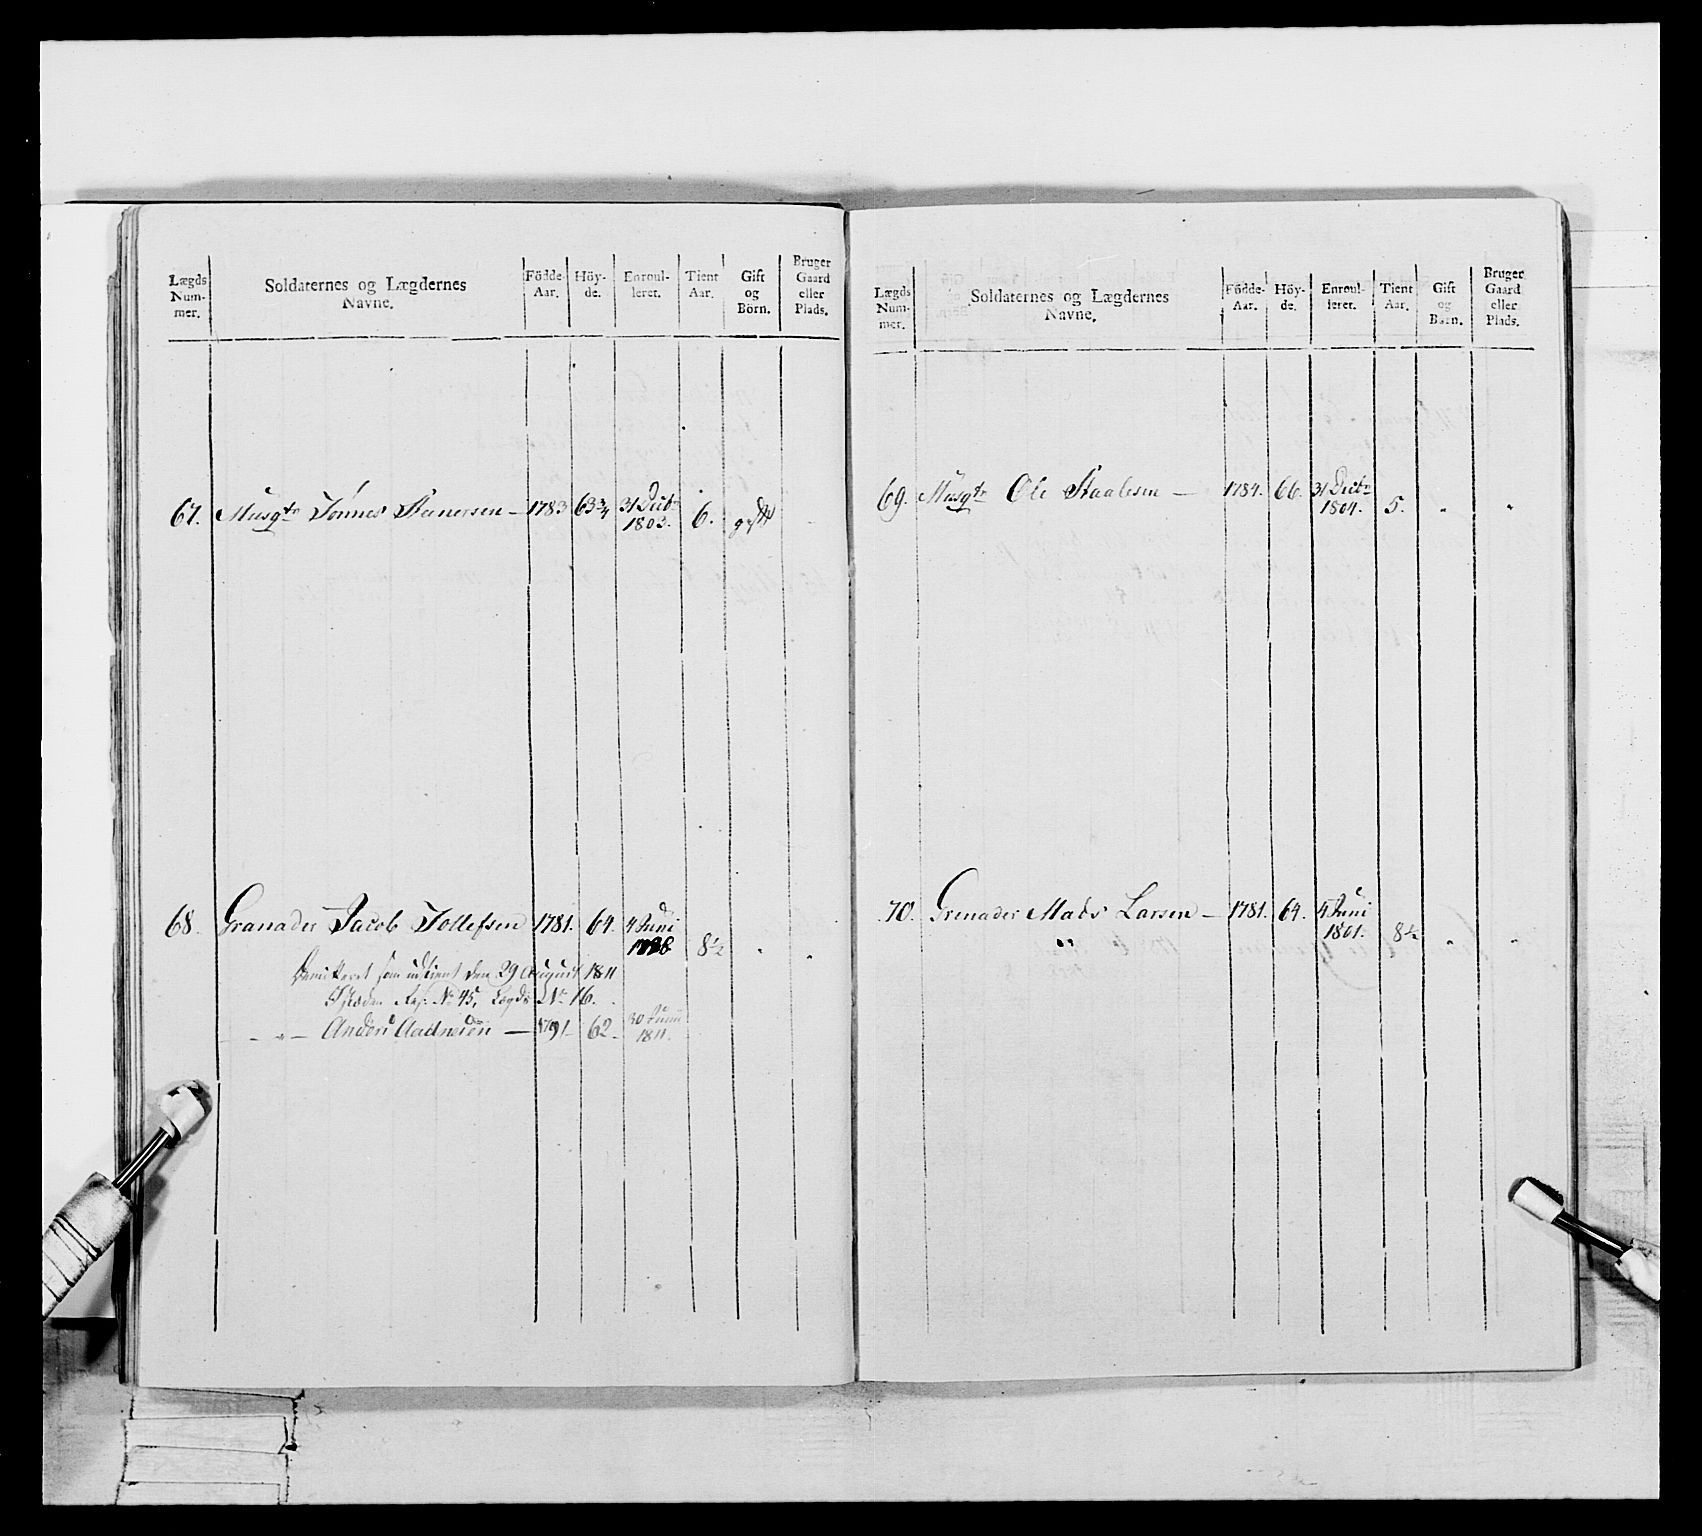 Lægds Num- mer.
Soldaternes og Lægdernes Navne.
Födde- Aar.
Höy- de.
Enroul- leret.
Tient Aar.
Gift og Börn.
Bruger Gaard eller Plads.
67. Musqtr Tönnes Steenersen — 1783 63¾ 31 Decbr 1803. 6. gift
68. Granader Jacob Tollefsen 1781. 64. 4 Juni 8½ "
som udtient den 29 August 1811
I steden No 45, Lægds No 16.
— " — Anders Aadnesön — 1791 62 30 Junii 1811.
Lægds Num- mer.
Soldaternes og Lægdernes Navne.
Födde- Aar.
Höy- de.
Enroul- leret.
Tient Aar.
Gift og Barn.
Bruger Gaard eller Plads.
69. Musqtr Ole Staalesen — 1784. 66. 31 Decbr 1804. 5. " "
70. Grenader Mads Larsen — 1781. 64. 4 Juni 1801. 8½ " "